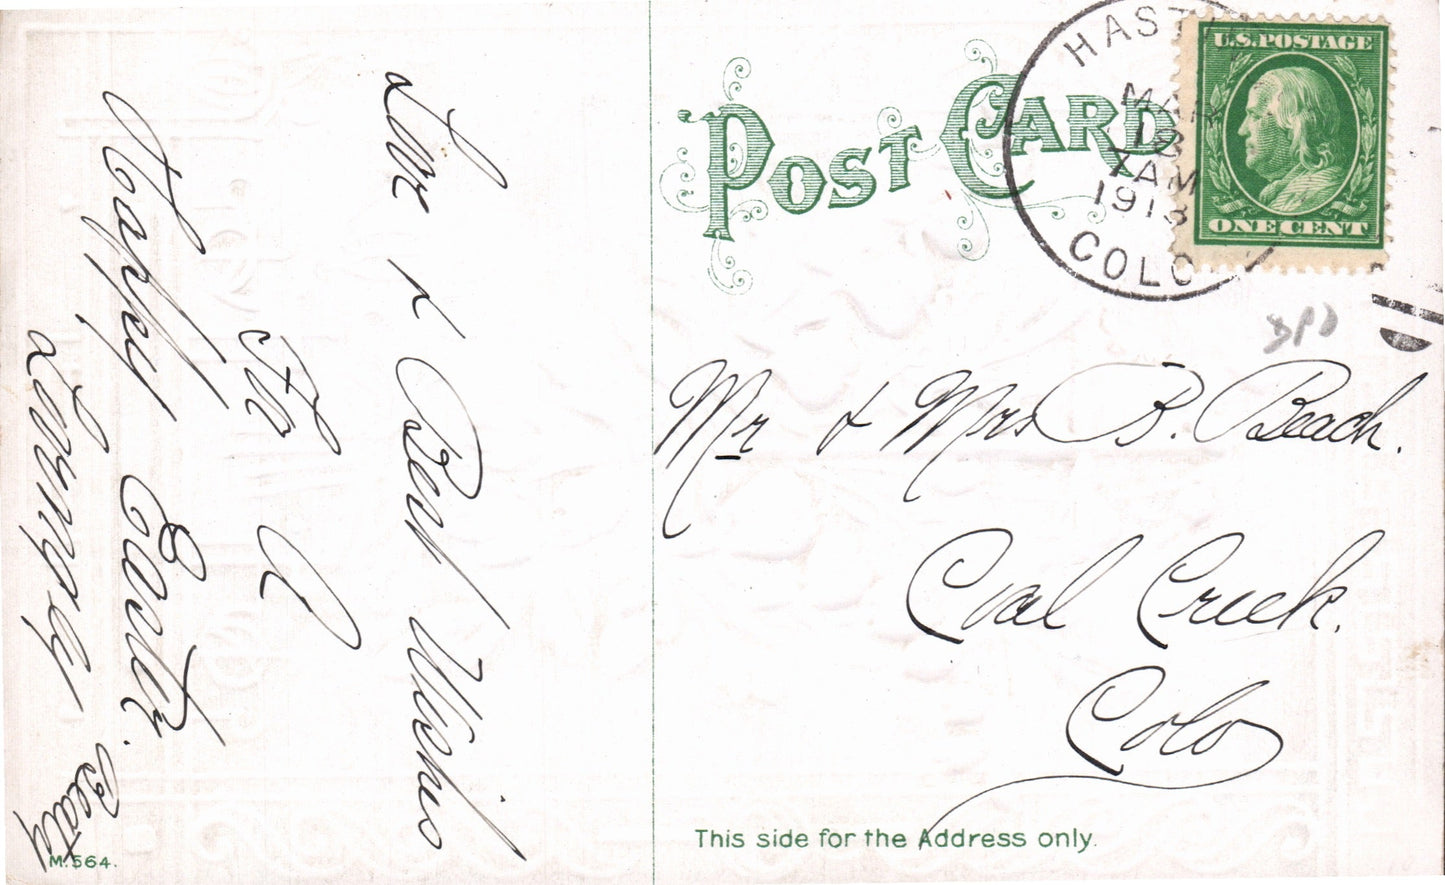 Love & Best Wishes
For
A
Happy Easter.
POST CARD
HAST
MAR
7 AM
1913
COLO
U.S.POSTAGE
ONE CENT
Mr & Mrs B. Beach.
Coal Creek.
Colo
This side for the Address only.
M.564.